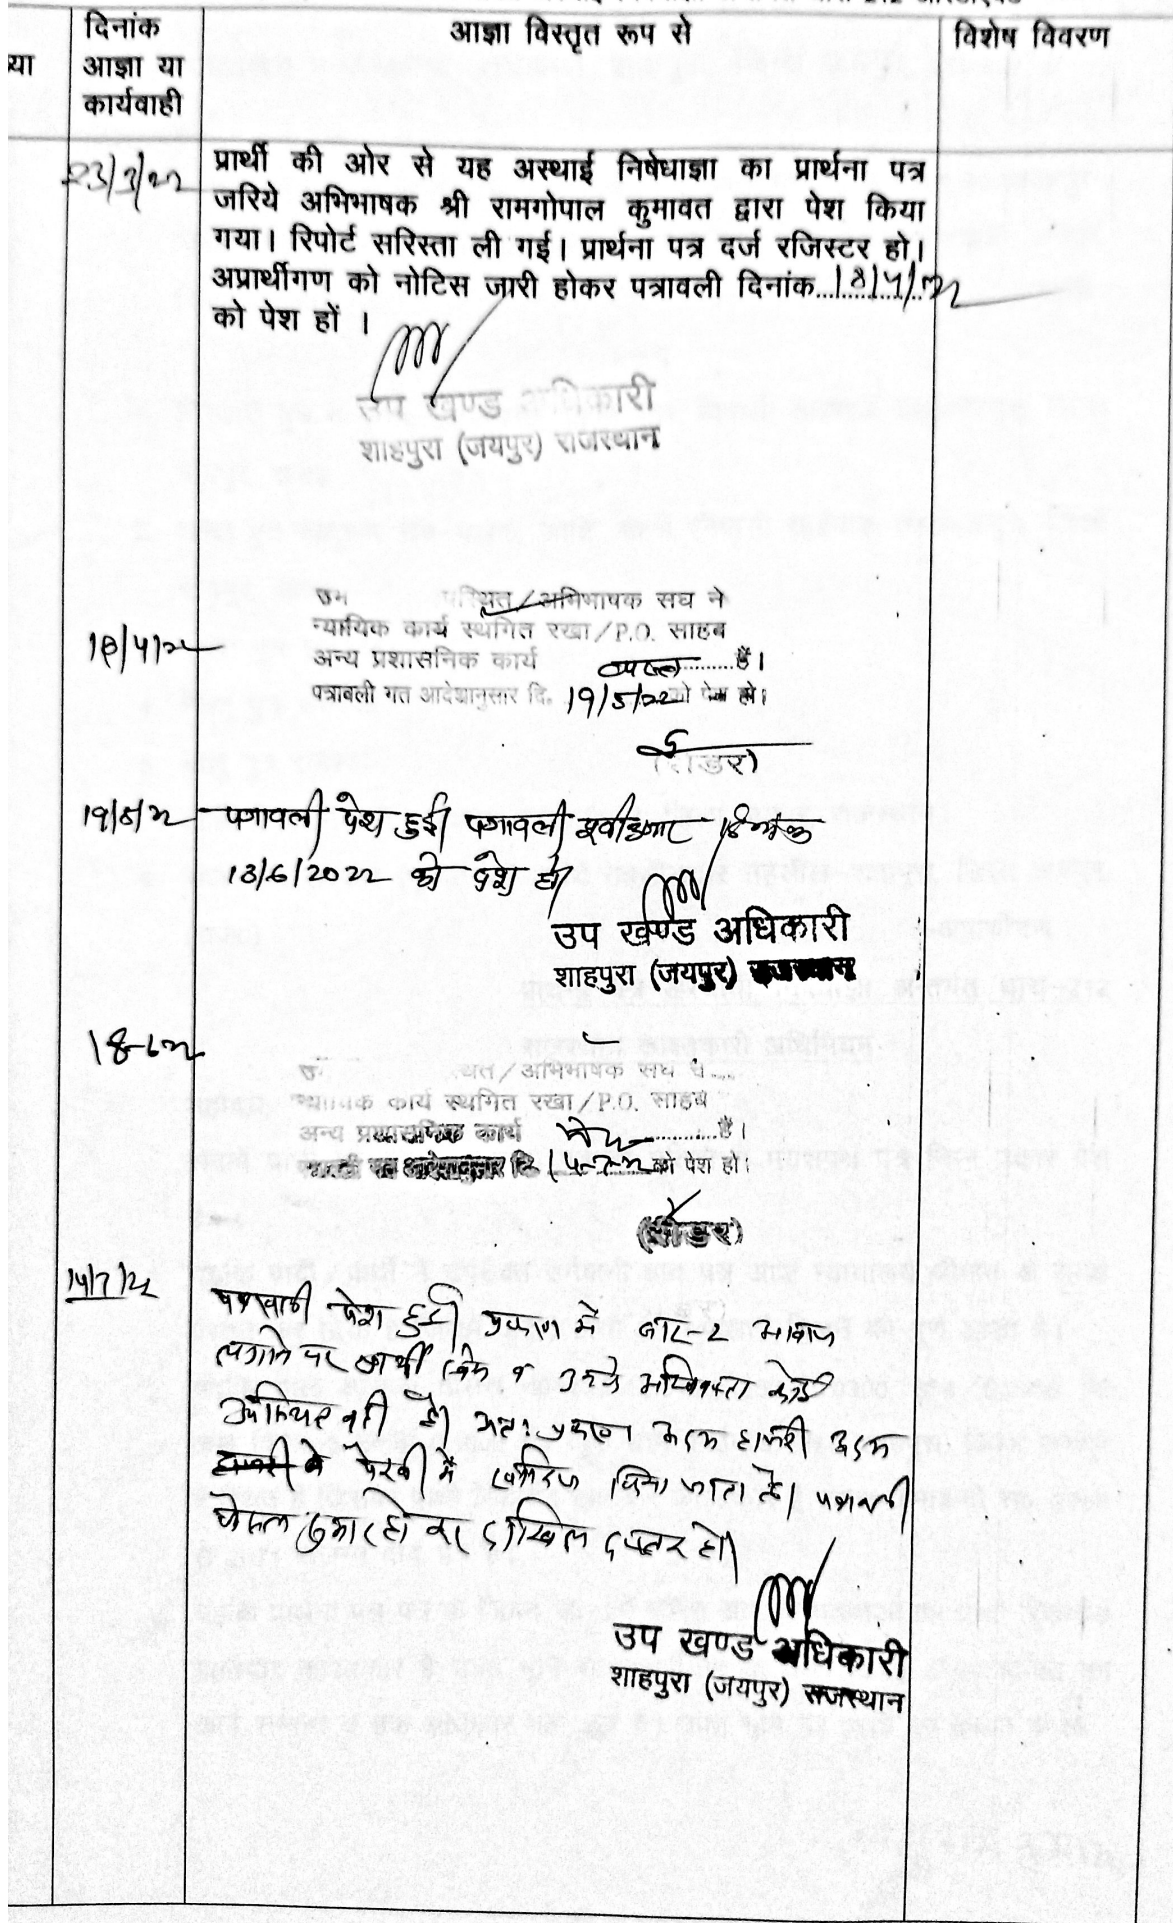 दिनांक
आज्ञा या
कार्यवाही
आज्ञा विस्तृत रूप से
विशेष विवरण
या
23/3/22
प्रार्थी की ओर से यह अस्थाई निषेधाज्ञा का प्रार्थना पत्र
जरिये अभिभाषक श्री रामगोपाल कुमावत द्वारा पेश किया
गया। रिपोर्ट सरिस्ता ली गई। प्रार्थना पत्र दर्ज रजिस्टर हो।
अप्रार्थीगण को नोटिस जारी होकर पत्रावली दिनांक 18/4/22
को पेश हों ।
उप खण्ड अधिकारी
शाहपुरा (जयपुर) राजस्थान
18/4/22
अभिभाषक संघ ने
न्यायिक कार्य स्थगित रखा/P.O. साहब
अन्य प्रशासनिक कार्य व्यस्त है।
पत्रावली गत आदेशानुसार दि. 19/5/22 को पेश हो।
(रीडर)
19/5/22
पत्रावली पेश हुई। पत्रावली
13/6/2022 को पेश हो।
उप खण्ड अधिकारी
शाहपुरा (जयपुर) राजस्थान
अभिभाषक संघ
न्यायिक कार्य स्थगित रखा/P.O. साहब
अन्य प्रशासनिक कार्य है।
को पेश हो।
(रीडर)
14/7/22
पत्रावली पेश हुई। प्रकरण में बार-2 आवाज
लगाने पर प्रार्थी व उनके अधिवक्ता कोई
उपस्थित नहीं है। अतः प्रकरण अदम हाजरी अदम
पैरवी में खारिज किया जाता है। पत्रावली
फैसल शुमार हो कर दाखिल दफ्तर हो।
उप खण्ड अधिकारी
शाहपुरा (जयपुर) राजस्थान